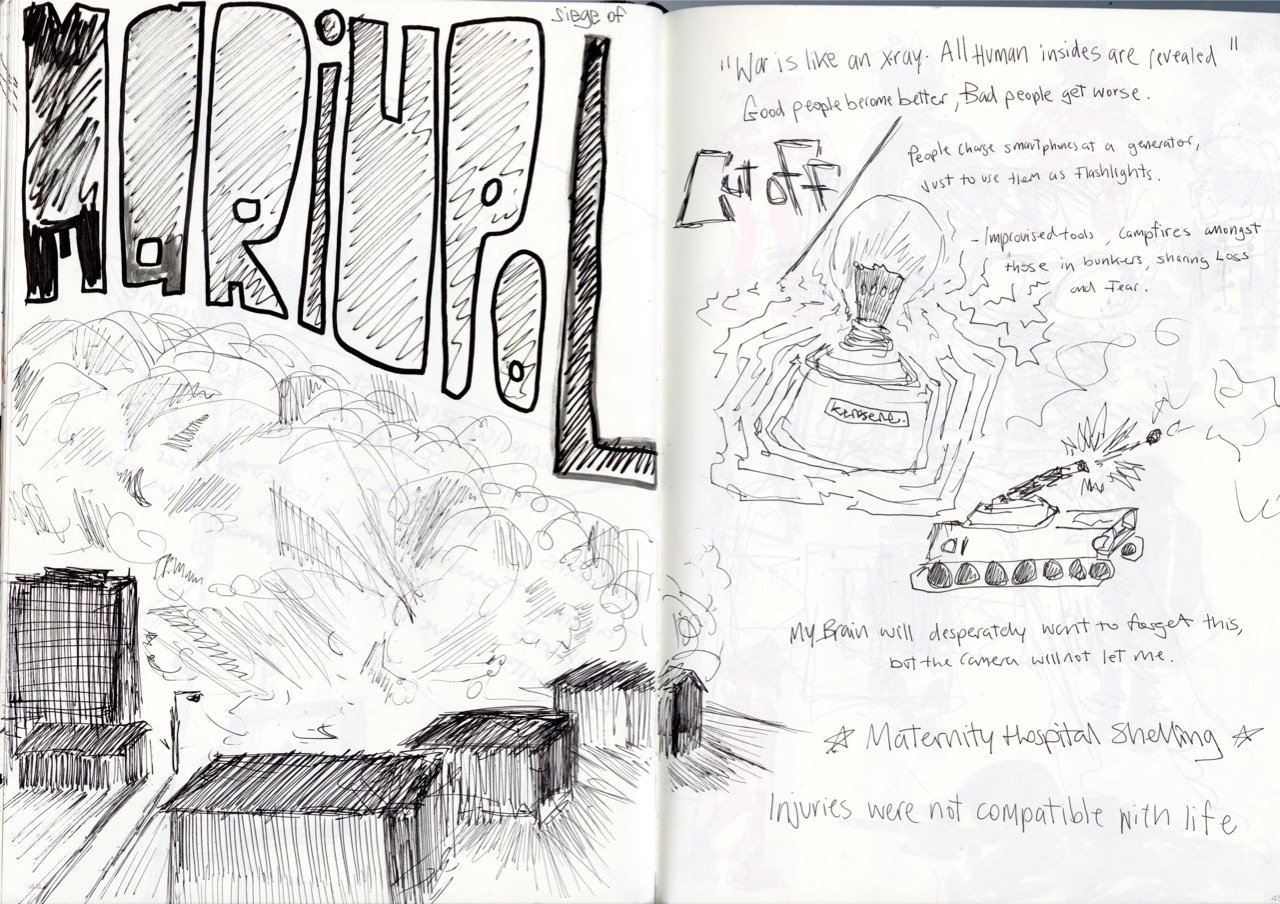 siege of
MaRiUPOL
"War is like an xray. All Human insides are revealed"
Good people become better, Bad people get worse.
Cut off
People charge smartphones at a generator,
Just to use them as Flashlights.
- Improvised tools, campfires amongst
those in bunkers, sharing Loss
and Fear.
Kerosene.
My Brain will desperately want to forget this,
but the camera will not let me.
☆ Maternity Hospital Shelling ☆
Injuries were not compatible with life
44